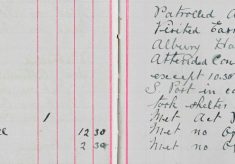 Patrolled
Visited
Albury
Attended Con
except 10.30
S Post in
took shelter
1 Met Act
12 30 Met no
2 30 Met no